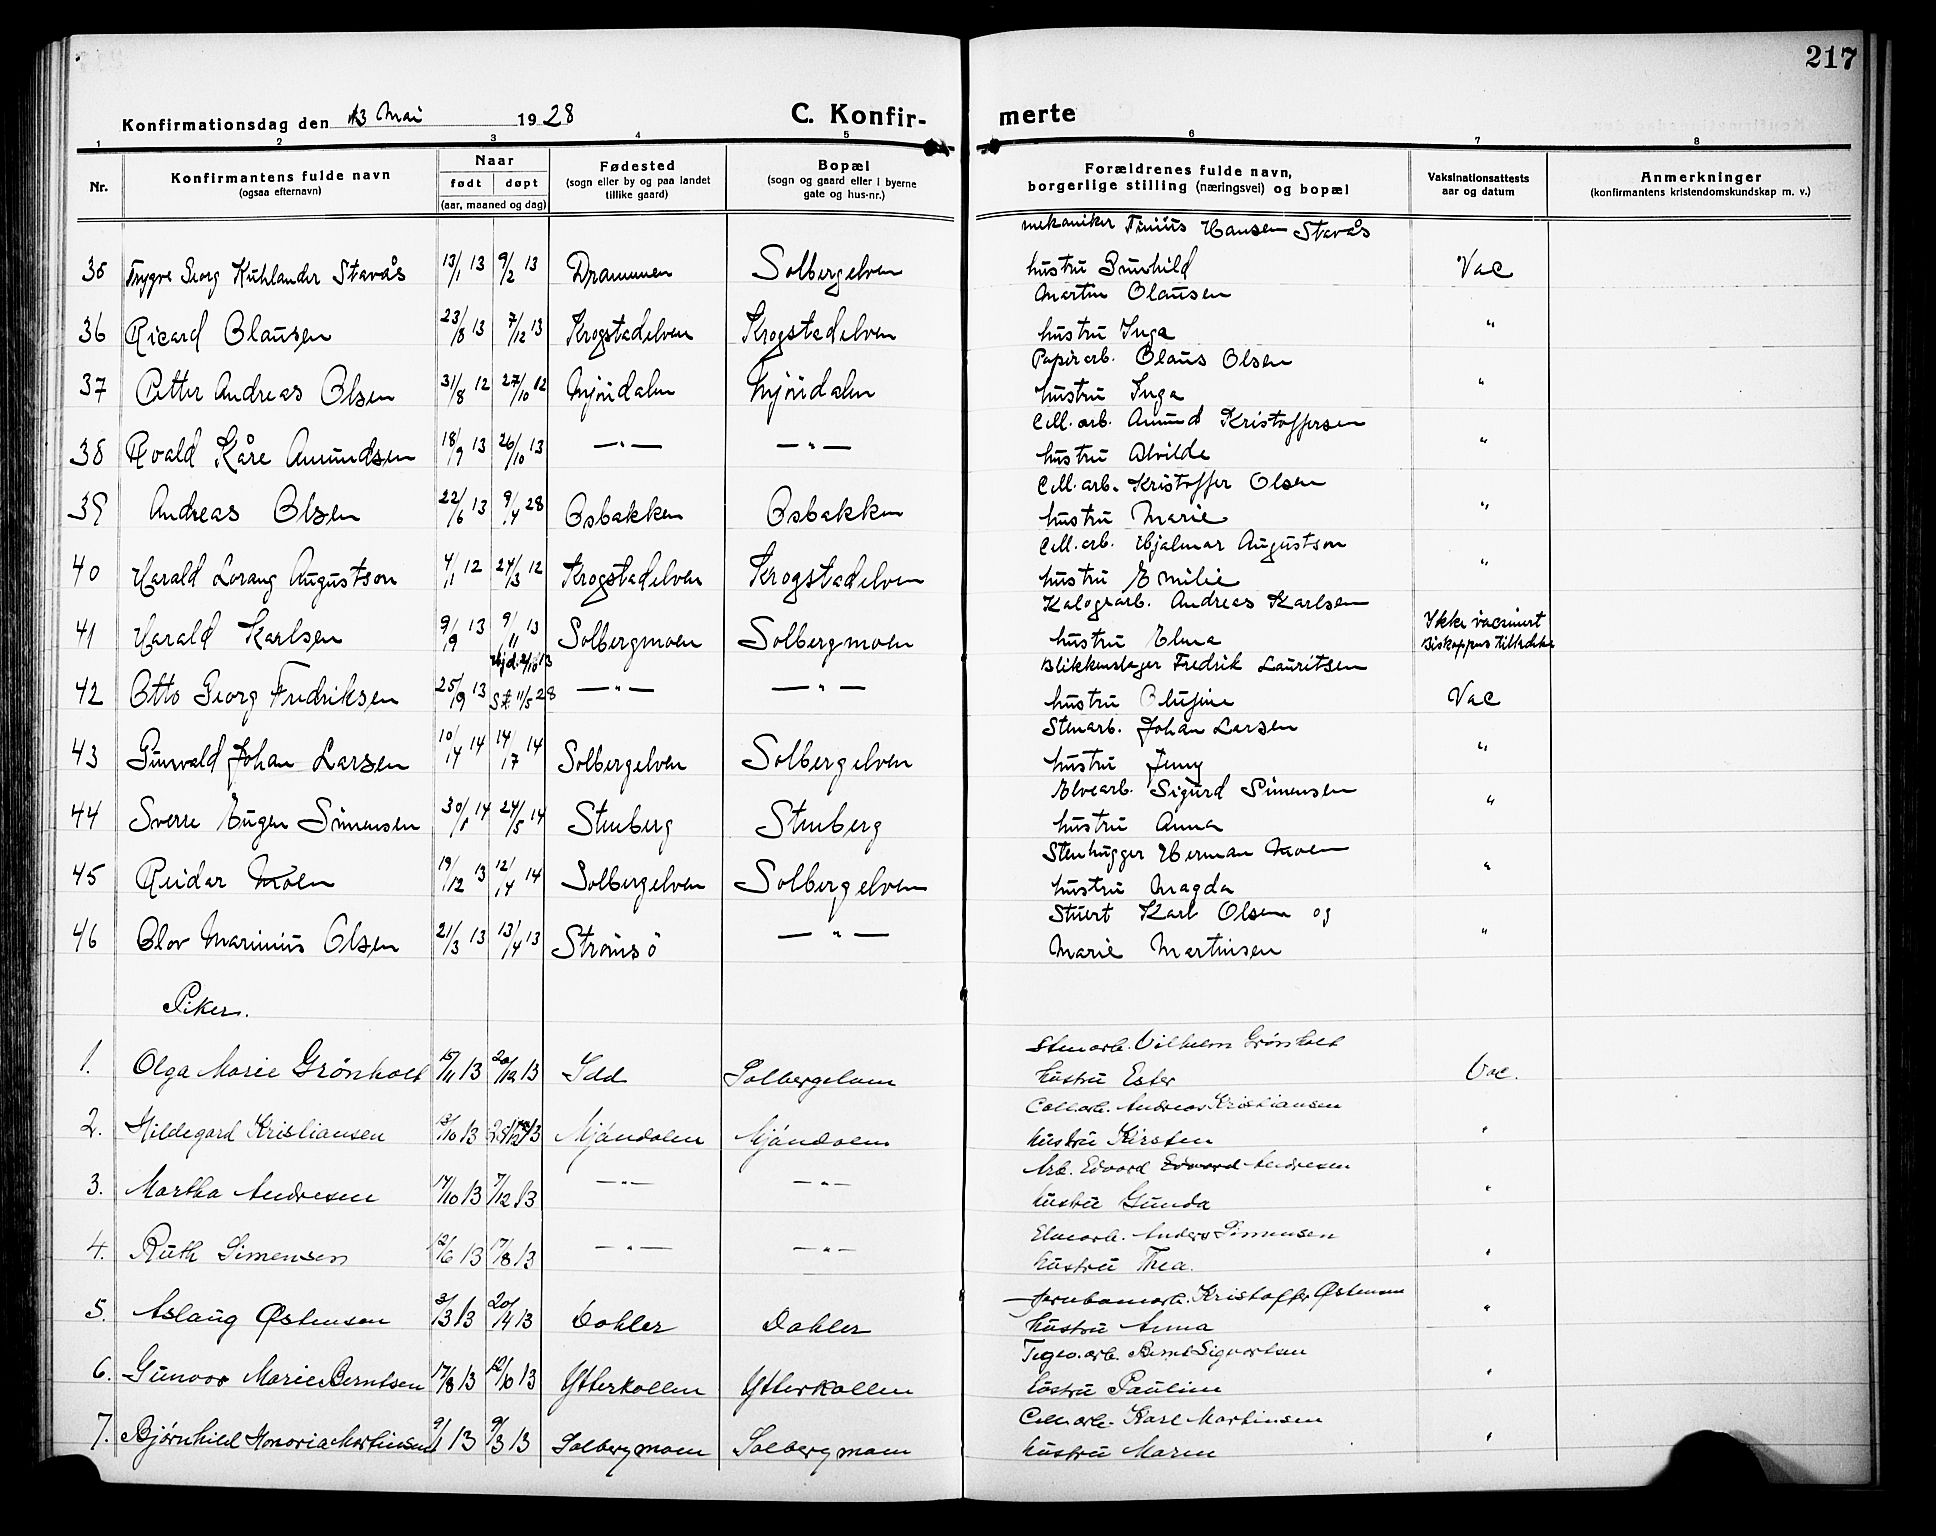 217
Konfirmationsdag den 13 Mai 1928 C. Konfir- merte
1 2 3 4 5 6 7 8
Nr. Konfirmantens fulde navn (ogsaa efternavn) Naar født døpt (aar, maaned og dag) Fødested (sogn eller by og paa landet tillike gaard) Bopæl (sogn og gaard eller i byerne gate og hus-nr.) Forældrenes fulde navn, borgerlige stilling (næringsvei) og bopæl Vaksinationsattests aar og datum Anmerkninger (konfirmantens kristendomskundskap m. v.)
mekaniker Tinius Hansen Stavås
35 Trygve Georg Kuhlander Stavås 13/1 13 9/2 13 Drammen Solbergelven hustru Gunhild Vac
Martin Olausen
36 Ricard Olausen 23/8 13 7/12 13 Krogstadelven Krogstadelven hustru Inga "
Papirarb. Olaus Olsen
37 Petter Andreas Olsen 31/8 12 27/10 12 Mjöndalen Mjöndalen hustru Inga "
Cell. arb. Amund Kristoffersen
38 Roald Kåre Amundsen 18/9 13 26/10 13 —"— —"— hustru Alvilde "
Cell. arb. Kristoffer Olsen
39 Andreas Olsen 22/6 13 9/4 28 Osbakken Osbakken hustru Marie "
Cell. arb. Hjalmar Augustson
40 Harald Lorang Augustson 4/1 12 24/3 12 Krogstadelven Krogstadelven hustru Emilie "
Kalograrb. Andreas Karlsen
41 Harald Karlsen 9/9 13 9/11 13 Solbergmoen Solbergmoen hustru Elna Ikke vacsinert Biskoppens tilladelse
Blikkenslager Fredrik Lauritsen
42 Otto Georg Fredriksen 25/9 13 Hjd. 2/10 13 St. 11/5 28 —"— —"— hustru Olufine Vac
Stenarb. Johan Larsen
43 Gunvald Johan Larsen 10/4 14 14/17 14 Solbergelven Solbergelven hustru Jenny "
Elvearb. Sigurd Simensen
44 Sverre Eugen Simensen 30/1 14 24/5 14 Stenberg Stenberg hustru Anna "
Stenhugger Herman Moen
45 Reidar Moen 19/12 13 12/4 14 Solbergelven Solbergelven hustru Magda "
Stuert Karl Olsen og
46 Olov Marinius Olsen 21/3 13 13/4 13 Strömsö —"— Marie Martinsen "
Piker.
Stenarb. Vilhelm Grönholt
1. Olga Marie Grönholt 15/11 13 20/12 13 Idd Solbergelven hustru Ester Vac.
Cellarb. Andreas Kristiansen
2. Hildegard Kristiansen 3/10 13 25/12 13 Mjöndalen Mjöndalen hustru Kirsten "
Arb. Edvard Edvard Andresen
3. Martha Andresen 17/10 13 7/12 13 —"— —"— hustru Gunda "
Elvearb. Anders Simensen
4. Ruth Simensen 12/6 13 17/8 13 —"— —"— hustru Thea. "
Jernbanearb. Kristoffer Østensen
5. Aslaug Østensen 3/3 13 20/4 13 Dahler Dahler hustru Anna "
Teglv.arb. Bernt Sigvartsen
6. Gunvor Marie Berntsen 17/8 13 12/10 13 Ytterkollen Ytterkollen hustru Pauline "
Cellarb. Karl Martinsen
7. Bjørnhild Honoria Martinsen 9/1 13 9/3 13 Solbergmoen Solbergmoen hustru Maren "